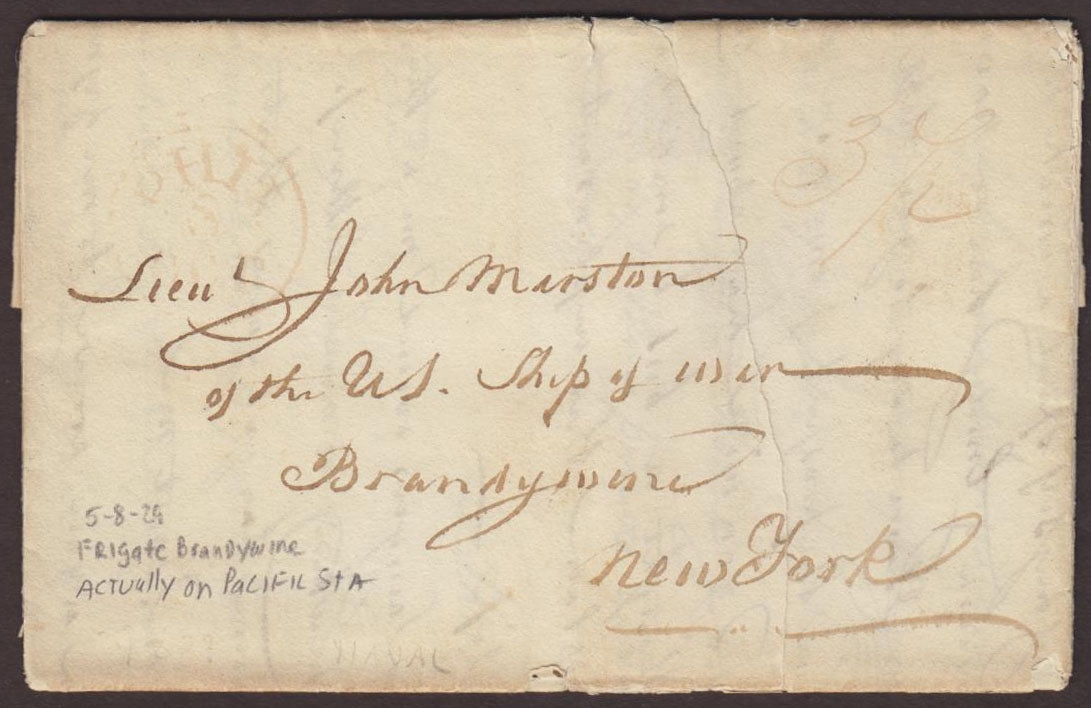 Lieut John Marston
of the US. Ship of war
Brandywine
New York
5-8-29
FRIgate Brandywine
ACTUally on PACIFIC StA
NAVAL